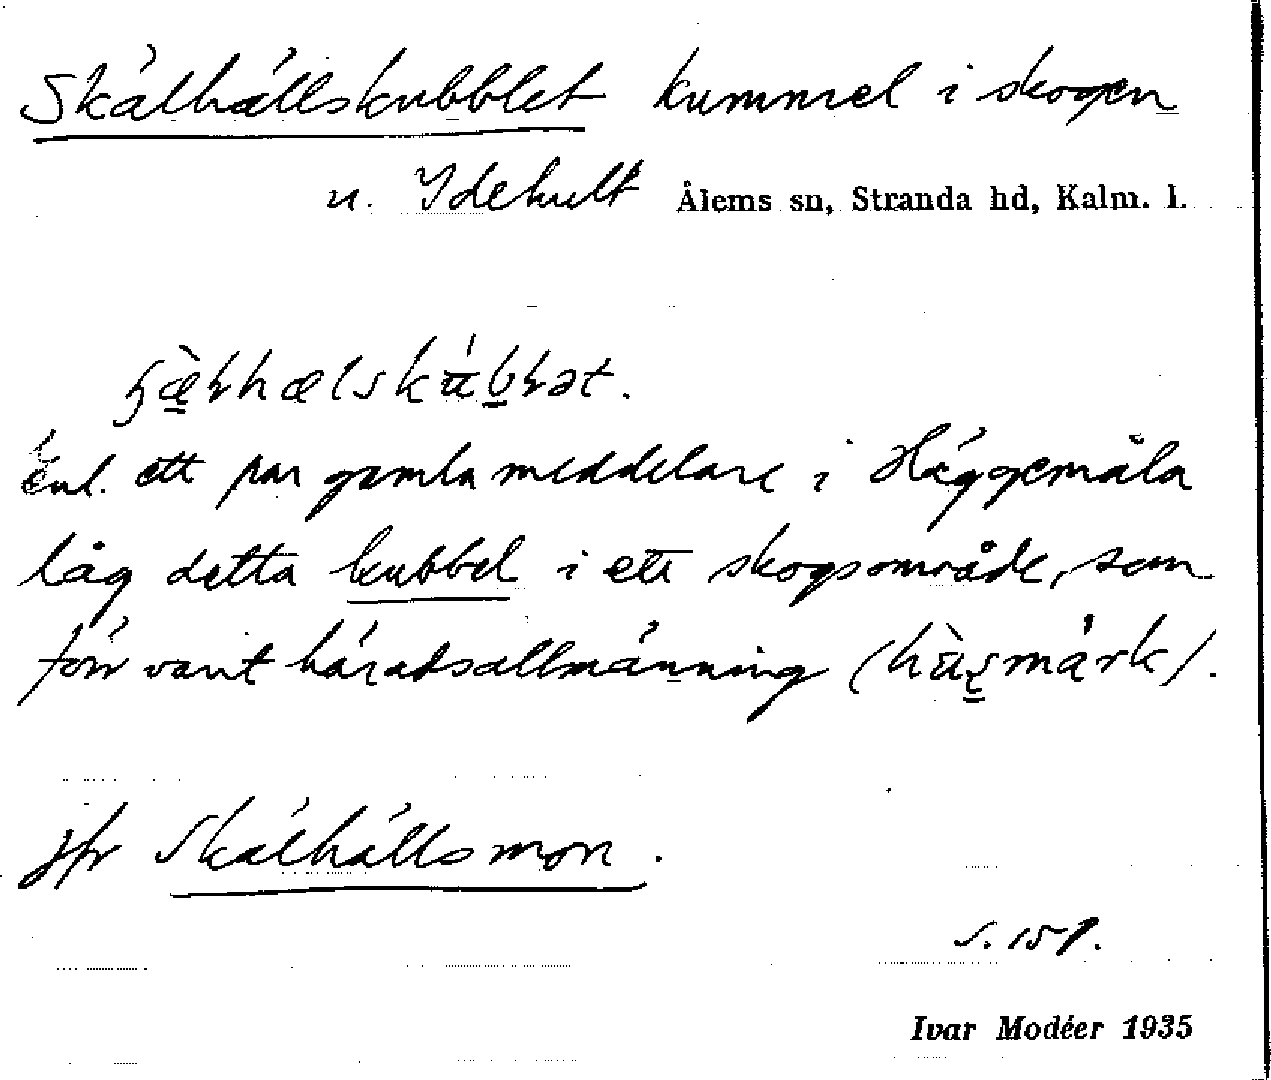 Skälhällskubblet kummel i skogen
n. Idehult Ålems sn, Stranda hd, Kalm. l.
Enl. ett par gamla meddelare i Häggemåla
låg detta kubbel i ett skogsområde, som
förr varit häradsallmänning
jfr Skälhällsmon.
s. 159.
Ivar Modéer 1935